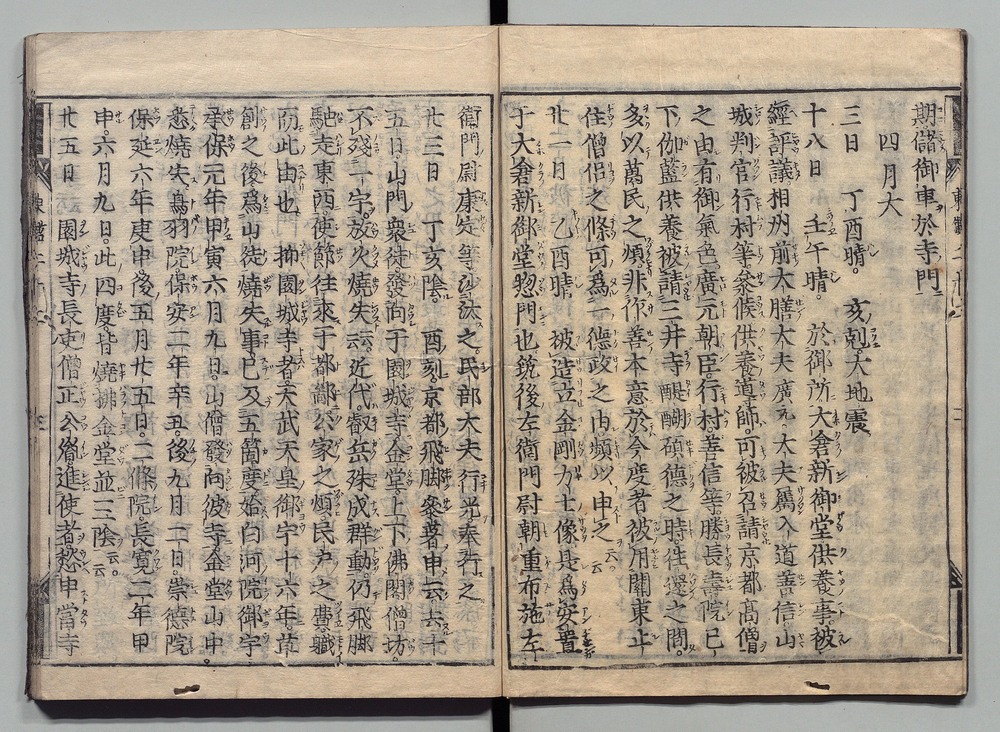 期儲御車於寺門
四月大
三日　丁酉晴。　亥剋大地震
十八日　壬午晴。　於御所大倉新御堂供養事。被
經評議相州前大膳大夫廣元大夫屬入道善信山
城判官行村等參候供養導師。可被召請京都高僧
之由有御氣色。廣元朝臣。行村善信等勝長壽院已
下。伽藍供養被請三井寺醍醐碩德之時往還之間。
多以萬民之煩非作善本意於今度者被用關東止
住僧侶之條可爲一德政之由頻以申之云云
廿一日　乙酉晴　被造立金剛力士像是爲安置
于大倉新御堂惣門也筑後左衛門尉朝重布施左
衛門尉康定等沙汰之。民部大夫行光奉行之
廿三日　丁亥陰。　酉刻。京都飛脚參著申云。去十
五日。山門衆徒發向于園城寺金堂。上下佛閣僧坊。
不殘一宇。放火燒失云云。近代。叡岳殊成群動。仍飛脚
馳走東西。使節往來于都鄙。公家之煩民戸之費職
而此由也　抑園城寺者。天武天皇御宇十六年草
創之後爲山徒燒失事。已及五箇度。始白河院御宇
承保元年甲寅六月九日。山僧發向彼寺金堂山中。
悉燒失。鳥羽院保安二年辛丑。後九月二日。崇德院
保延六年庚申後五月廿五日。二條院長寬二年甲
申。六月九日。此四度。皆燒拂金堂並三陰云云。
廿五日　園城寺長吏僧正公胤進使者愁申當寺